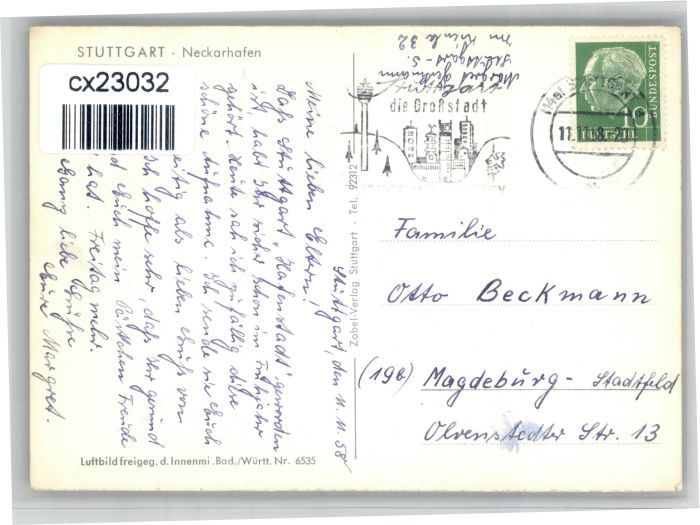 STUTTGART · Neckarhafen
cx23032
Stuttgart, den 11.11.58
Meine lieben Eltern!
Daß Stuttgart „Hafenstadt" geworden
ist, habt Ihr sicher schon im Fernseher
gehört. Heute sah ich zufällig diese
schöne Aufnahme. Ich sende sie Euch
eitig als lieben Gruß von
Ich hoffe sehr, daß Ihr gesund
d Euch mein Päckchen Freude
hat. Freitag mehr.
Ganz liebe Grüße
Eure Margret.
Luftbild freigeg. d. Innenmi. Bad./Württ. Nr. 6535
Zobel-Verlag Stuttgart · Tel. 92312
Margret Beckmann
Stuttgart - S.
Im Winkle 32
die Großstadt
10
DEUTSCHE
BUNDESPOST
Familie
Otto Beckmann
(19b) Magdeburg - Stadtfeld
Olvenstedter Str. 13